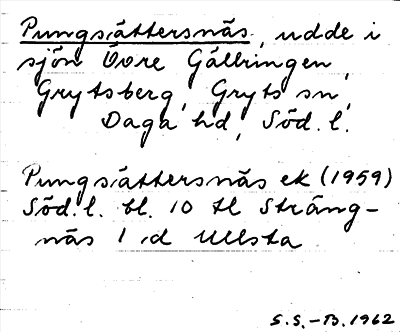 Pungsättersnäs, udde i
sjön Övre Gällringen,
Grytsberg, Gryts sn,
Daga hd, Söd. l.
Pungsättersnäs ek (1959)
Söd. l. bl. 10 tl Sträng-
näs 1 id Ullsta
S.S.-B. 1962